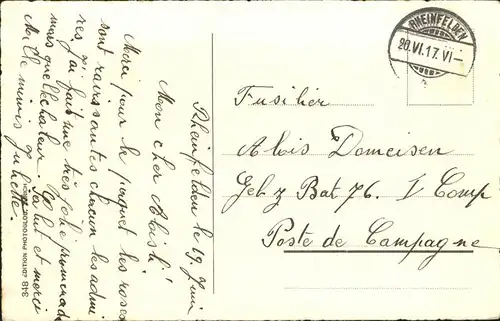 Rheinfelden le 19. Juin
Mon cher Aloisli!
Merci pour le paquet les roses
sont ravissantes chacun les admi
res, j'ai fait une très jolie promenade
mais quelle chaleur. Salut et merci
Mille mimis Juliette.
RHEINFELDEN
20.VI.17.VI-
Fusilier
Alois Domeisen
Geb z Bat 76. I Comp
Poste de Campagne
348 EDITION PHOTOGLOB